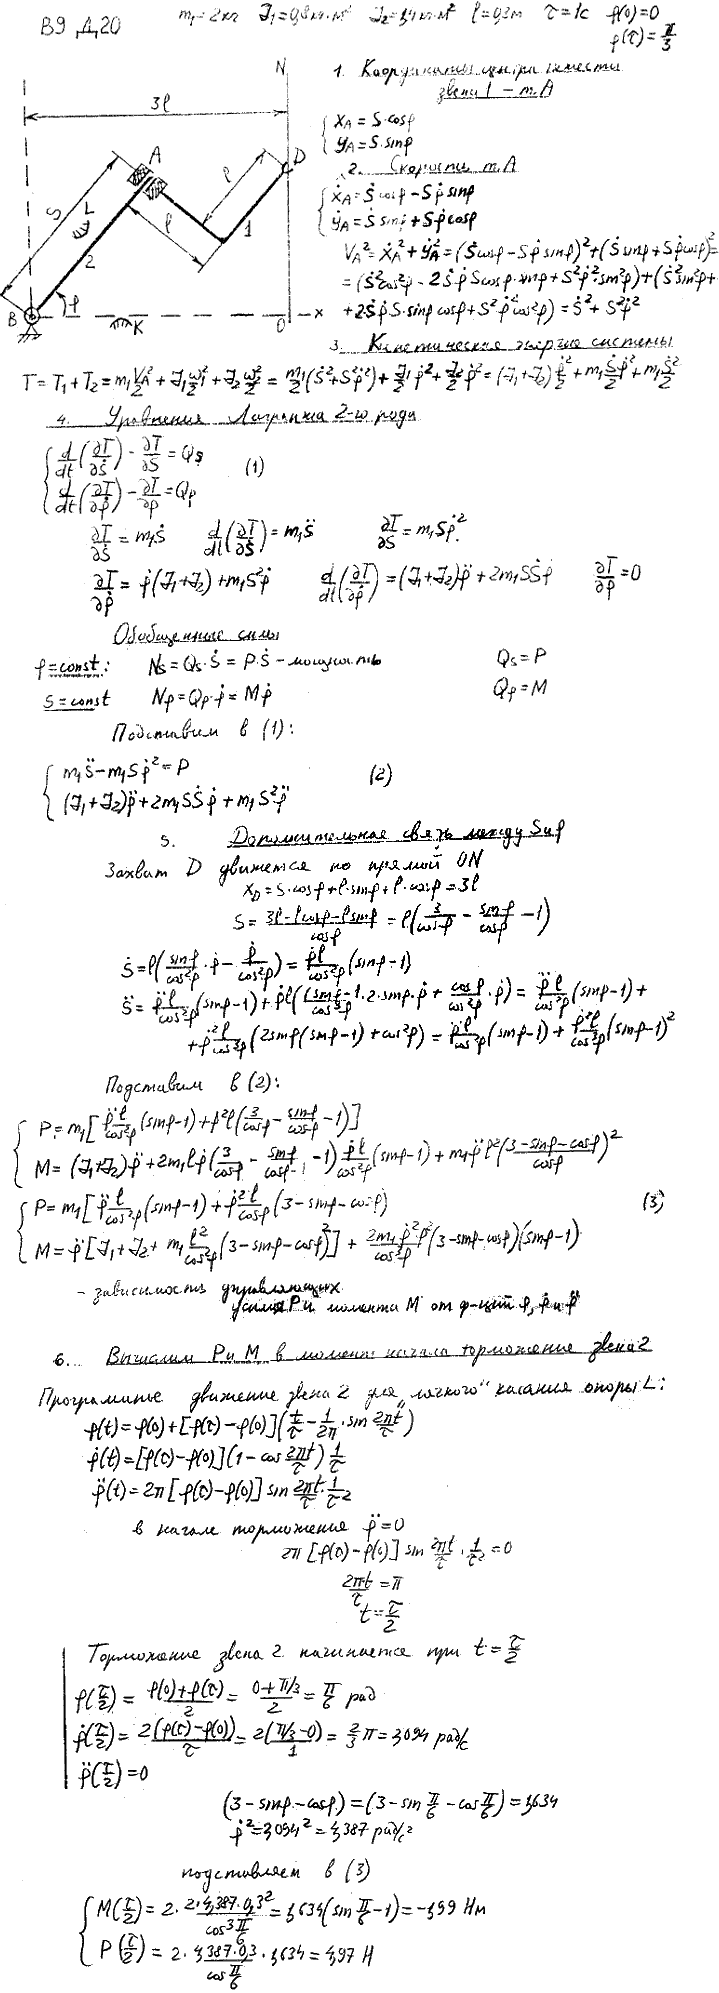 В9, Д.20
m₁=2кг J₁=0,8кг·м² J₂=1,4кг·м² l=0,3м τ=1с φ(0)=0
φ(τ)=π/3
N
3l
A
D
S
L
l
l
2
1
B
φ
K
O
x
1. Координаты центра тяжести
звена 1 – т.А
x_A = S·cosφ
y_A = S·sinφ
2. Скорость т.А
ẋ_A = Ṡcosφ – Sφ̇ sinφ
ẏ_A = Ṡ sinφ + Sφ̇ cosφ
V_A² = ẋ_A² + ẏ_A² = (Ṡcosφ – Sφ̇ sinφ)² + (Ṡ sinφ + Sφ̇cosφ)² =
= (Ṡ²cos²φ – 2Ṡφ̇ S cosφ·sinφ + S²φ̇²·sin²φ) + (Ṡ²sin²φ +
+ 2Ṡφ̇ S·sinφ cosφ + S²φ̇²cos²φ) = Ṡ² + S²φ̇²
3. Кинетическая энергия системы
T = T₁ + T₂ = m₁V_A²/2 + J₁ω₁²/2 + J₂ω₂²/2 = m₁/2(Ṡ² + S²φ̇²) + J₁/2 φ̇² + J₂/2 φ̇² = (J₁+J₂)φ̇²/2 + m₁S²φ̇²/2 + m₁Ṡ²/2
4. Уравнения Лагранжа 2-го рода
d/dt(∂T/∂Ṡ) – ∂T/∂S = Q_S
(1)
d/dt(∂T/∂φ̇) – ∂T/∂φ = Q_φ
∂T/∂Ṡ = m₁Ṡ d/dt(∂T/∂Ṡ) = m₁S̈ ∂T/∂S = m₁Sφ̇²
∂T/∂φ̇ = φ̇(J₁+J₂) + m₁S²φ̇ d/dt(∂T/∂φ̇) = (J₁+J₂)φ̈ + 2m₁SṠφ̇ ∂T/∂φ = 0
Обобщенные силы
φ=const: N_S = Q_S·Ṡ = P·Ṡ – мощность Q_S = P
S=const N_φ = Q_φ·φ̇ = Mφ̇ Q_φ = M
Подставим в (1):
m₁S̈ – m₁Sφ̇² = P
(2)
(J₁+J₂)φ̈ + 2m₁SṠφ̇ + m₁S²φ̈
5. Дополнительная связь между S и φ
Захват D движется по прямой ON
x_D = S·cosφ + l·sinφ + l·cosφ = 3l
S = (3l – lcosφ – lsinφ)/cosφ = l(3/cosφ – sinφ/cosφ – 1)
Ṡ = l(sinφ/cos²φ·φ̇ – φ̇/cos²φ) = φ̇l/cos²φ (sinφ–1)
S̈ = φ̈l/cos²φ (sinφ–1) + φ̇l((sinφ–1·2·sinφ·φ̇)/cos³φ + cosφ/cos²φ·φ̇) = φ̈l/cos²φ (sinφ–1) +
+ φ̇²l/cos³φ (2sinφ(sinφ–1) + cos²φ) = φ̈l/cos²φ (sinφ–1) + φ̇²l/cos³φ (sinφ–1)²
Подставим в (2):
P = m₁[φ̈l/cos²φ (sinφ–1) + φ̇²l(3/cosφ – sinφ/cosφ – 1)]
M = (J₁+J₂)φ̈ + 2m₁lφ̇(3/cosφ – sinφ/cosφ – 1)φ̇l/cos²φ (sinφ–1) + m₁φ̈l²((3–sinφ–cosφ)/cosφ)²
P = m₁[φ̈l/cos²φ (sinφ–1) + φ̇²l/cosφ (3–sinφ–cosφ)
(3)
M = φ̈[J₁+J₂+m₁l²/cos²φ (3–sinφ–cosφ)²] + 2m₁φ̇²l²/cos³φ (3–sinφ–cosφ)(sinφ–1)
– зависимость управляющих
усилия P и момента M от ф-ций φ, φ̇ и φ̈
6. Вычислим P и M в момент начала торможение звена 2
Программное движение звена 2 для „мягкого" касания опоры L:
φ(t) = φ(0) + [φ(τ) – φ(0)](t/τ – 1/2π·sin 2πt/τ)
φ̇(t) = [φ(τ) – φ(0)](1 – cos 2πt/τ) 1/τ
φ̈(t) = 2π[φ(τ) – φ(0)] sin 2πt/τ·1/τ²
в начале торможение φ̈=0
2π[φ(τ) – φ(0)] sin 2πt/τ·1/τ² = 0
2πt/τ = π
t = τ/2
Торможение звена 2 начинается при t = τ/2
φ(τ/2) = (φ(0)+φ(τ))/2 = (0+π/3)/2 = π/6 рад
φ̇(τ/2) = 2(φ(τ)–φ(0))/τ = 2(π/3–0)/1 = 2/3 π = 2,094 рад/с
φ̈(τ/2) = 0
(3–sinφ–cosφ) = (3–sin π/6 – cos π/6) = 1,634
φ̇² = 2,094² = 4,387 рад/с²
подставляем в (3)
M(τ/2) = 2·2·4,387·0,3²/cos³ π/6 = 1,634(sin π/6 – 1) = –1,99 Нм
P(τ/2) = 2·4,387·0,3/cos π/6 · 1,634 = 4,97 Н